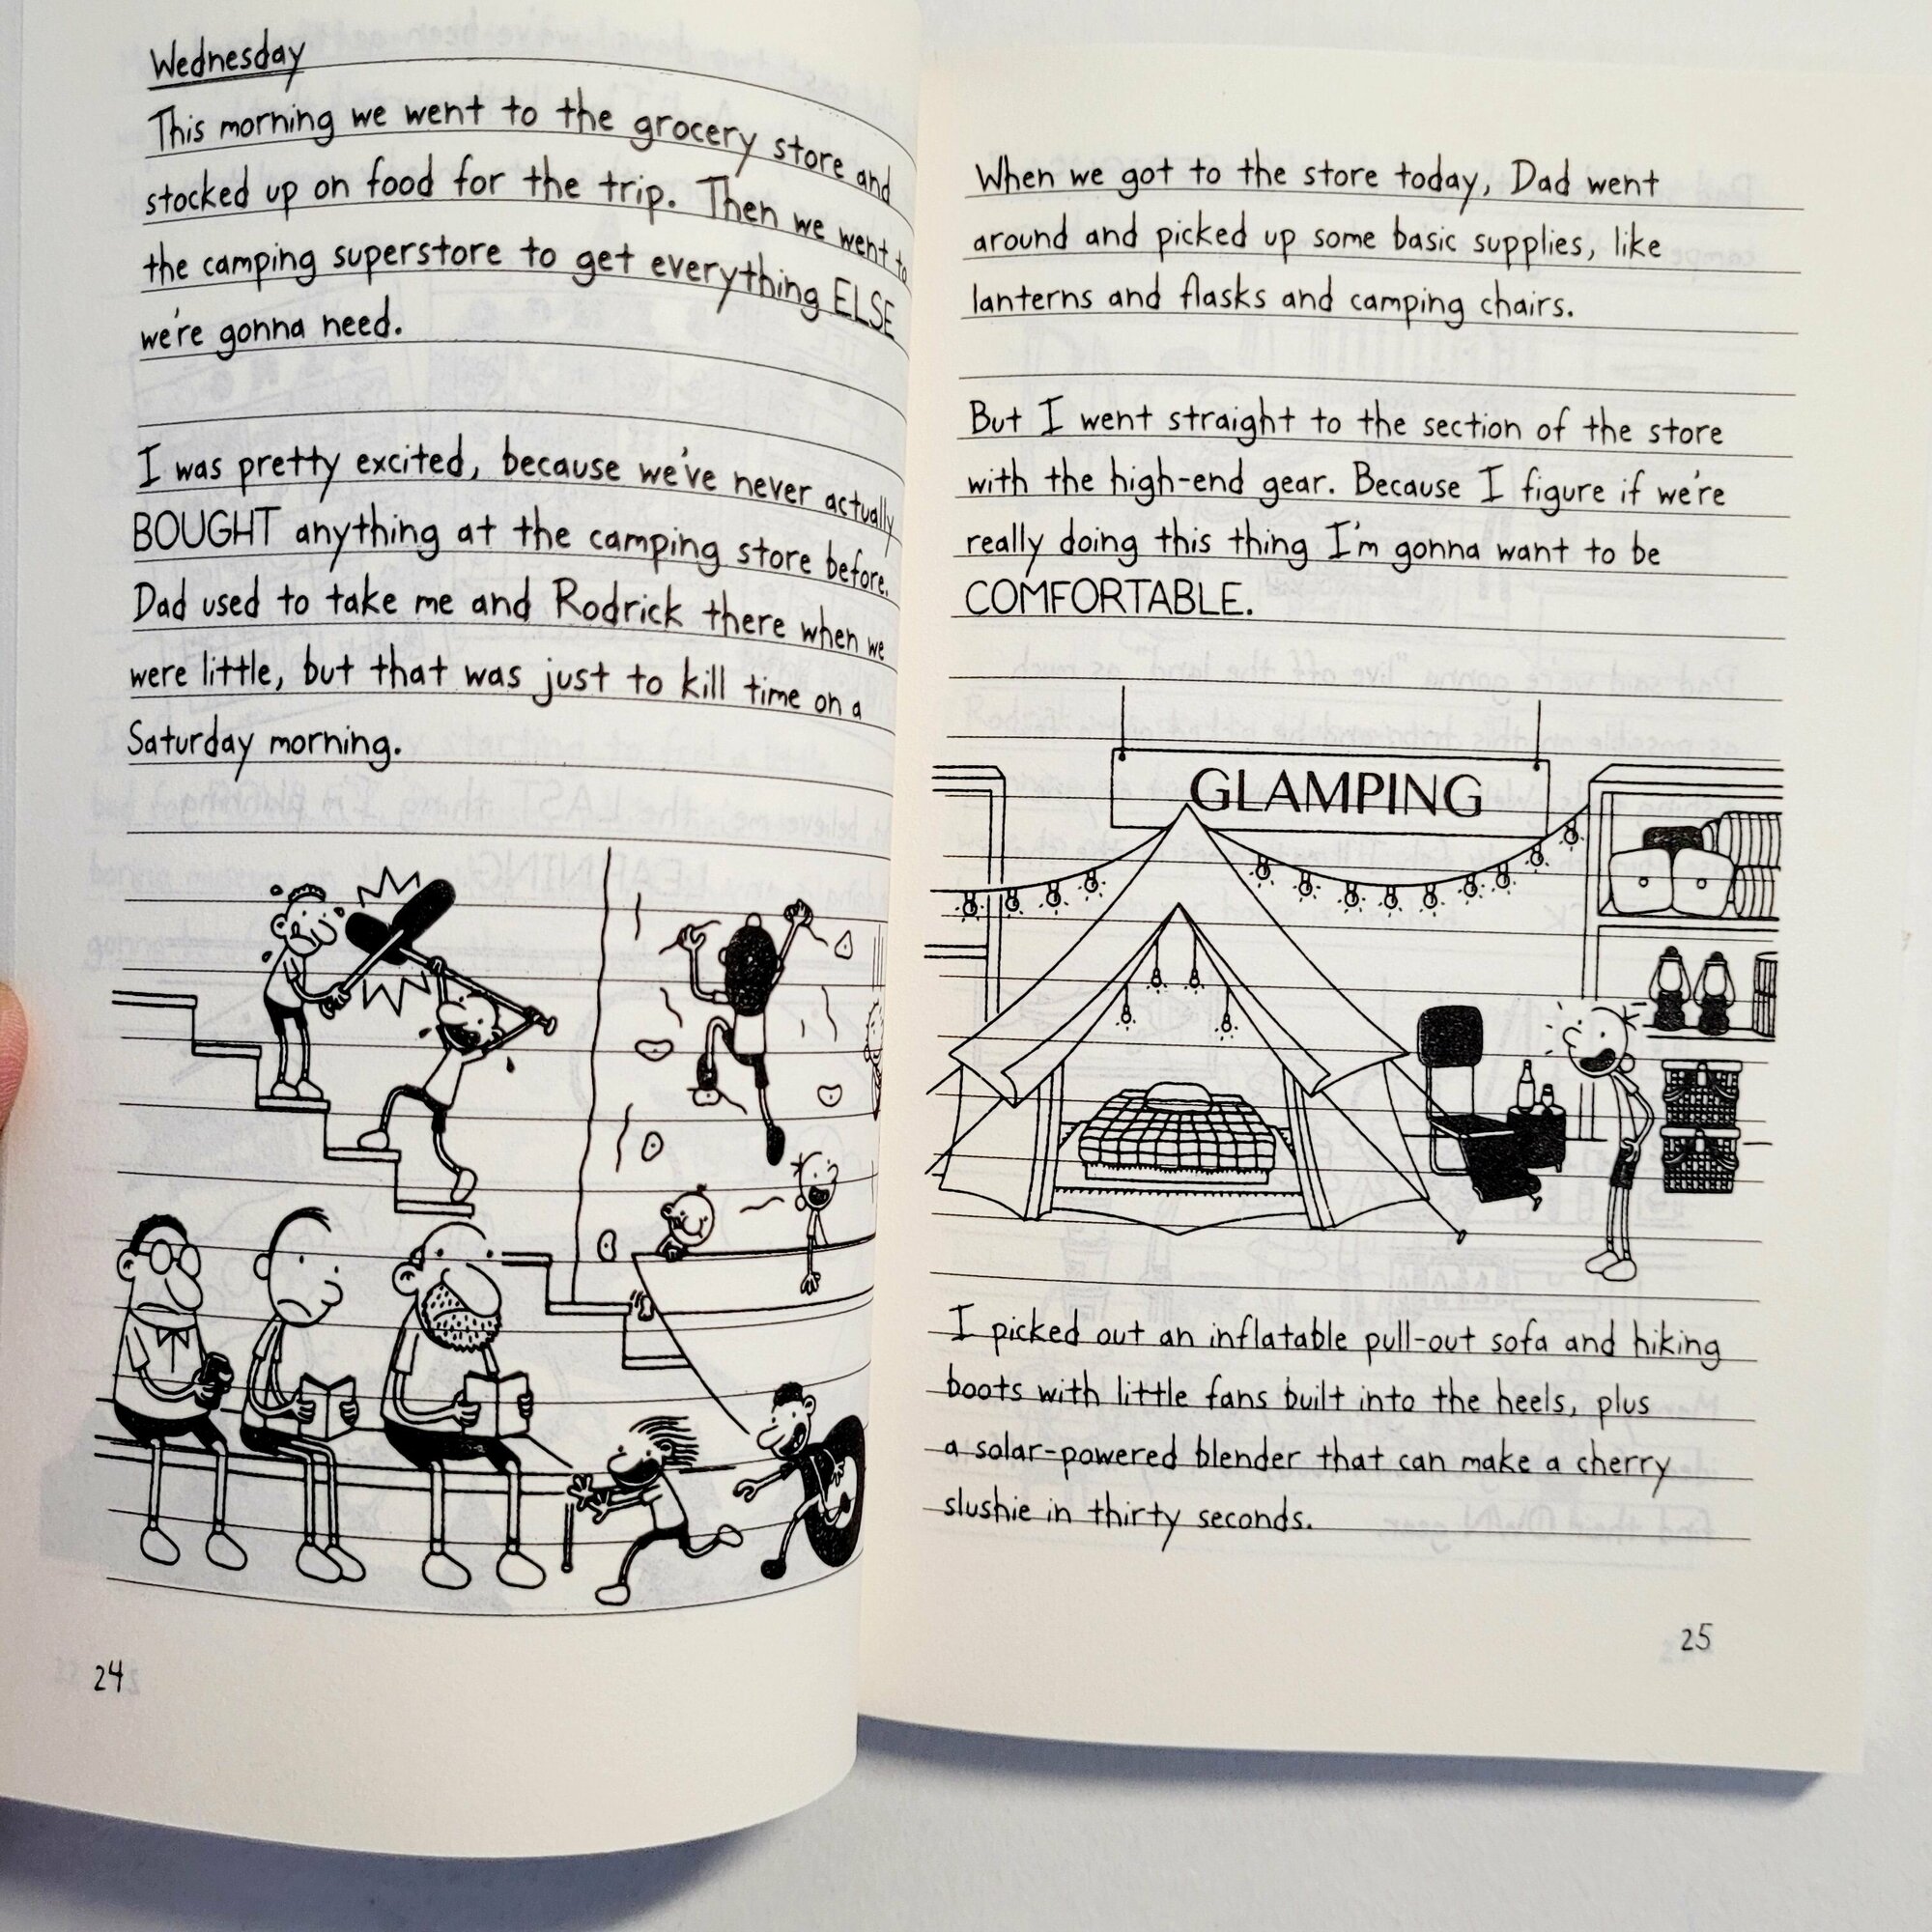 Wednesday
This morning we went to the grocery store and
stocked up on food for the trip. Then we went to
the camping superstore to get everything ELSE
we're gonna need.
I was pretty excited, because we've never actually
BOUGHT anything at the camping store before.
Dad used to take me and Rodrick there when we
were little, but that was just to kill time on a
Saturday morning.
24
When we got to the store today, Dad went
around and picked up some basic supplies, like
lanterns and flasks and camping chairs.
But I went straight to the section of the store
with the high-end gear. Because I figure if we're
really doing this thing I'm gonna want to be
COMFORTABLE.
GLAMPING
I picked out an inflatable pull-out sofa and hiking
boots with little fans built into the heels, plus
a solar-powered blender that can make a cherry
slushie in thirty seconds.
25